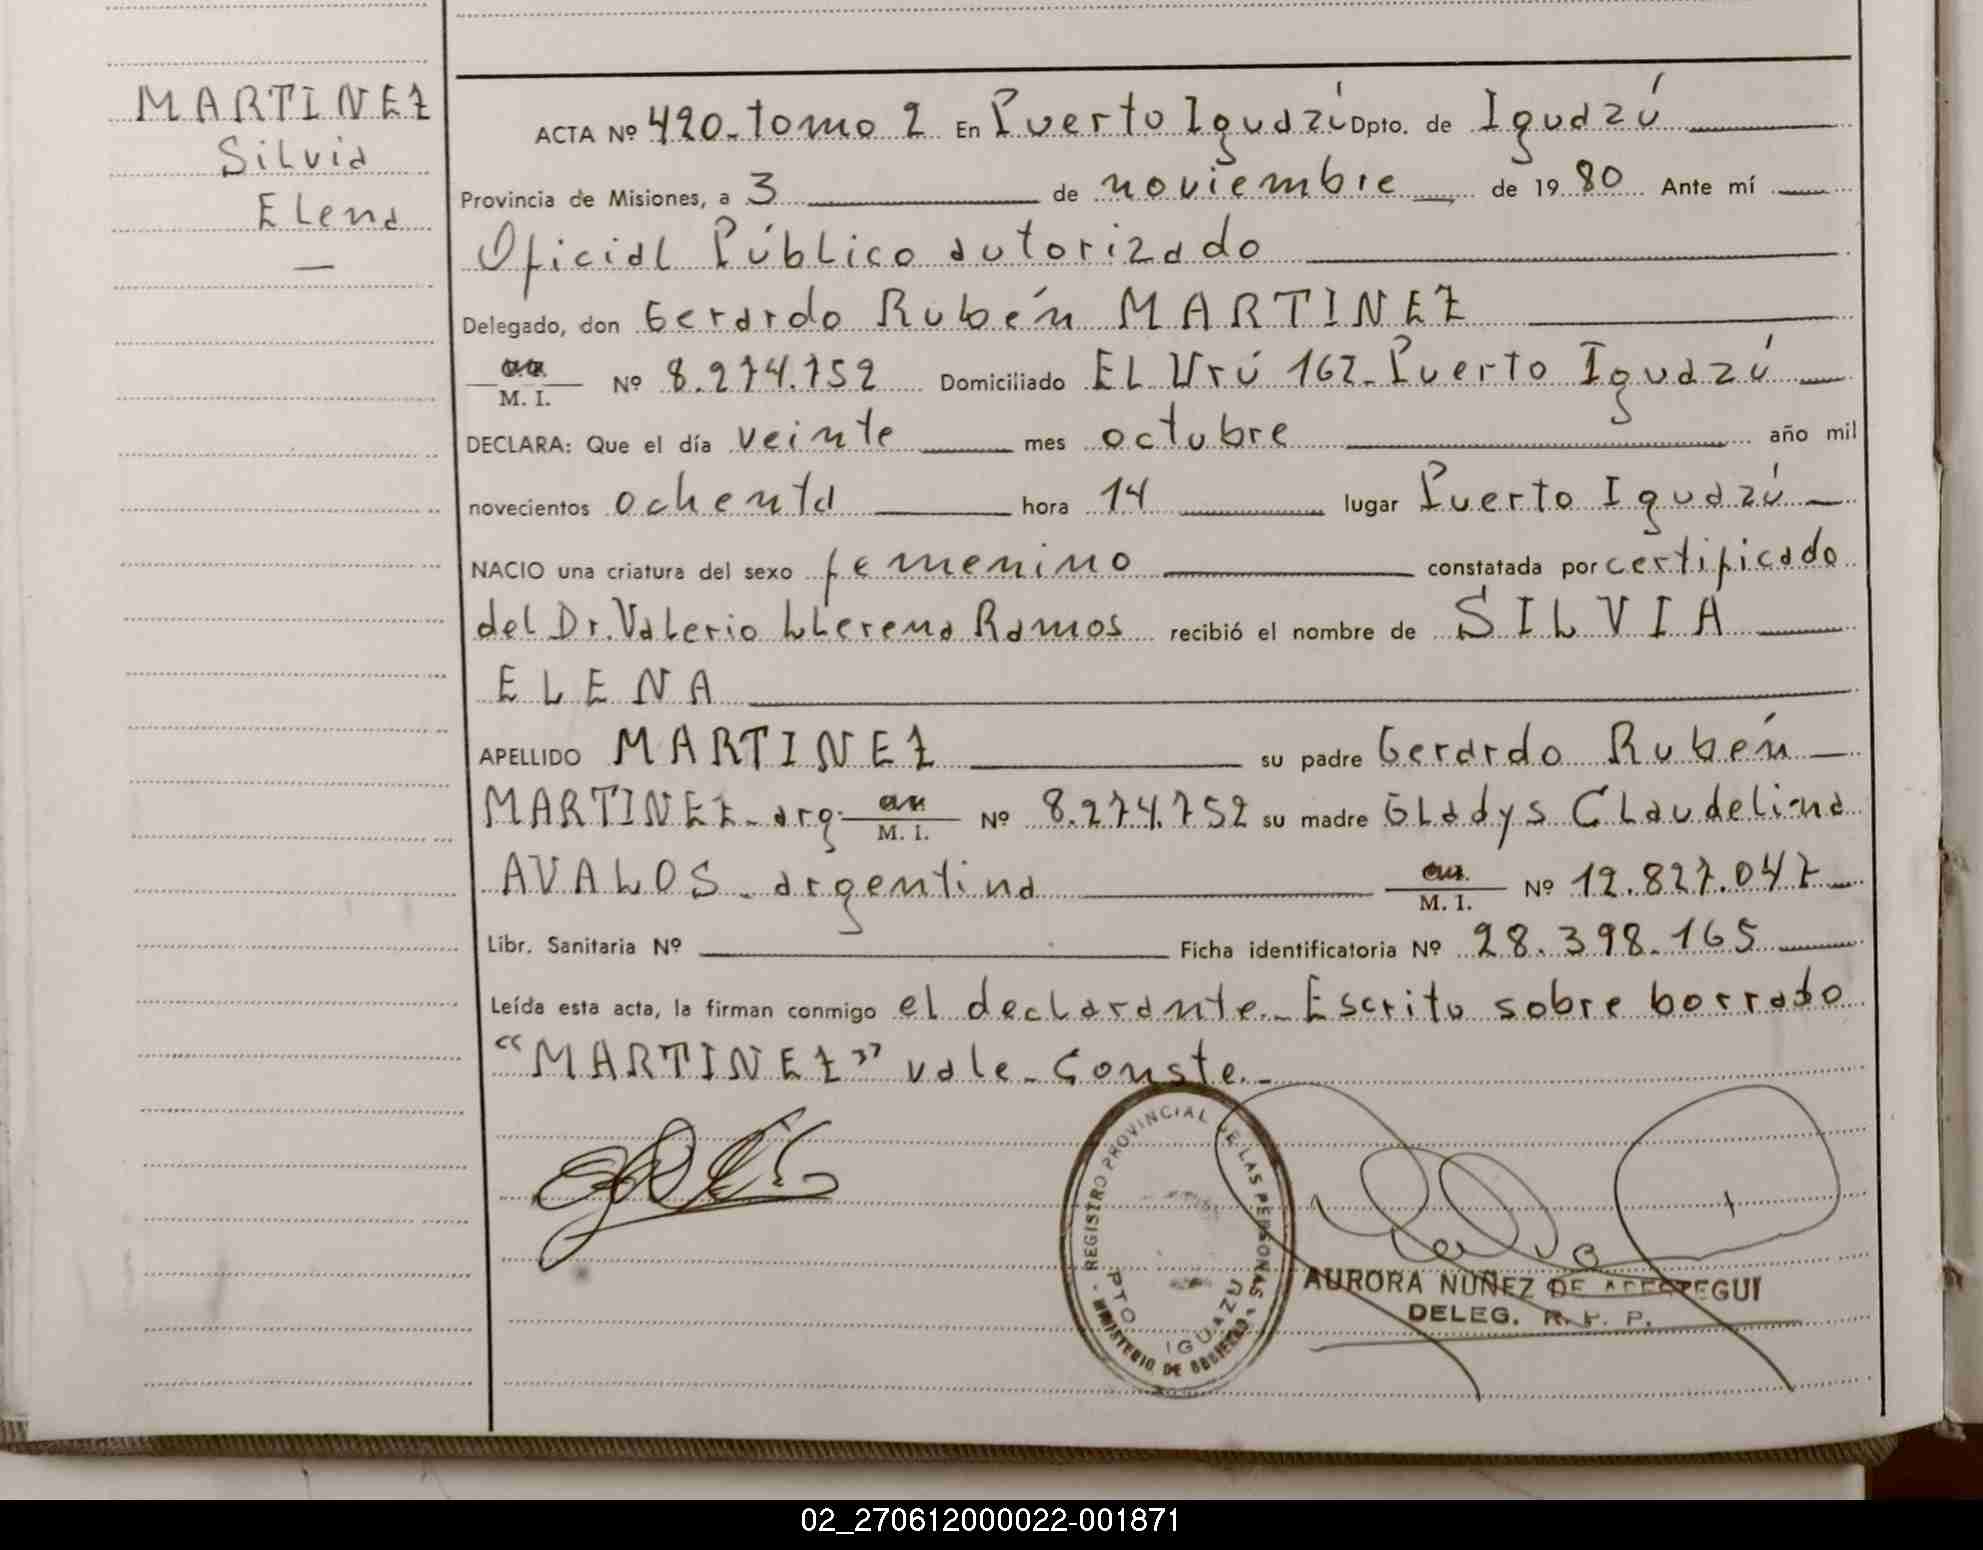 MARTINEZ
Silvia
Elena
ACTA Nº 420 - tomo 2 En Puerto Iguazú Dpto. de Iguazú
Provincia de Misiones, a 3 de noviembre de 1980 Ante mí
Oficial Público autorizado
Delegado, don Gerardo Rubén MARTINEZ
M. I. Nº 8.274.752 Domiciliado El Urú 162 - Puerto Iguazú
DECLARA: Que el día veinte mes octubre año mil
novecientos ochenta hora 14 lugar Puerto Iguazú
NACIO una criatura del sexo femenino constatada por certificado
del Dr. Valerio Llerena Ramos recibió el nombre de SILVIA
ELENA
APELLIDO MARTINEZ su padre Gerardo Rubén
MARTINEZ - arg. M. I. Nº 8.274.752 su madre Gladys Claudelina
AVALOS - argentina M. I. Nº 12.827.047
Libr. Sanitaria Nº Ficha identificatoria Nº 28.398.165
Leída esta acta, la firman conmigo el declarante. - Escrito sobre borrado
“MARTINEZ” vale - Conste. -
REGISTRO PROVINCIAL DE LAS PERSONAS
PTO IGUAZU
MINISTERIO DE GOBIERNO
AURORA NUÑEZ DE
DELEG. R. P. P.
02_270612000022-001871